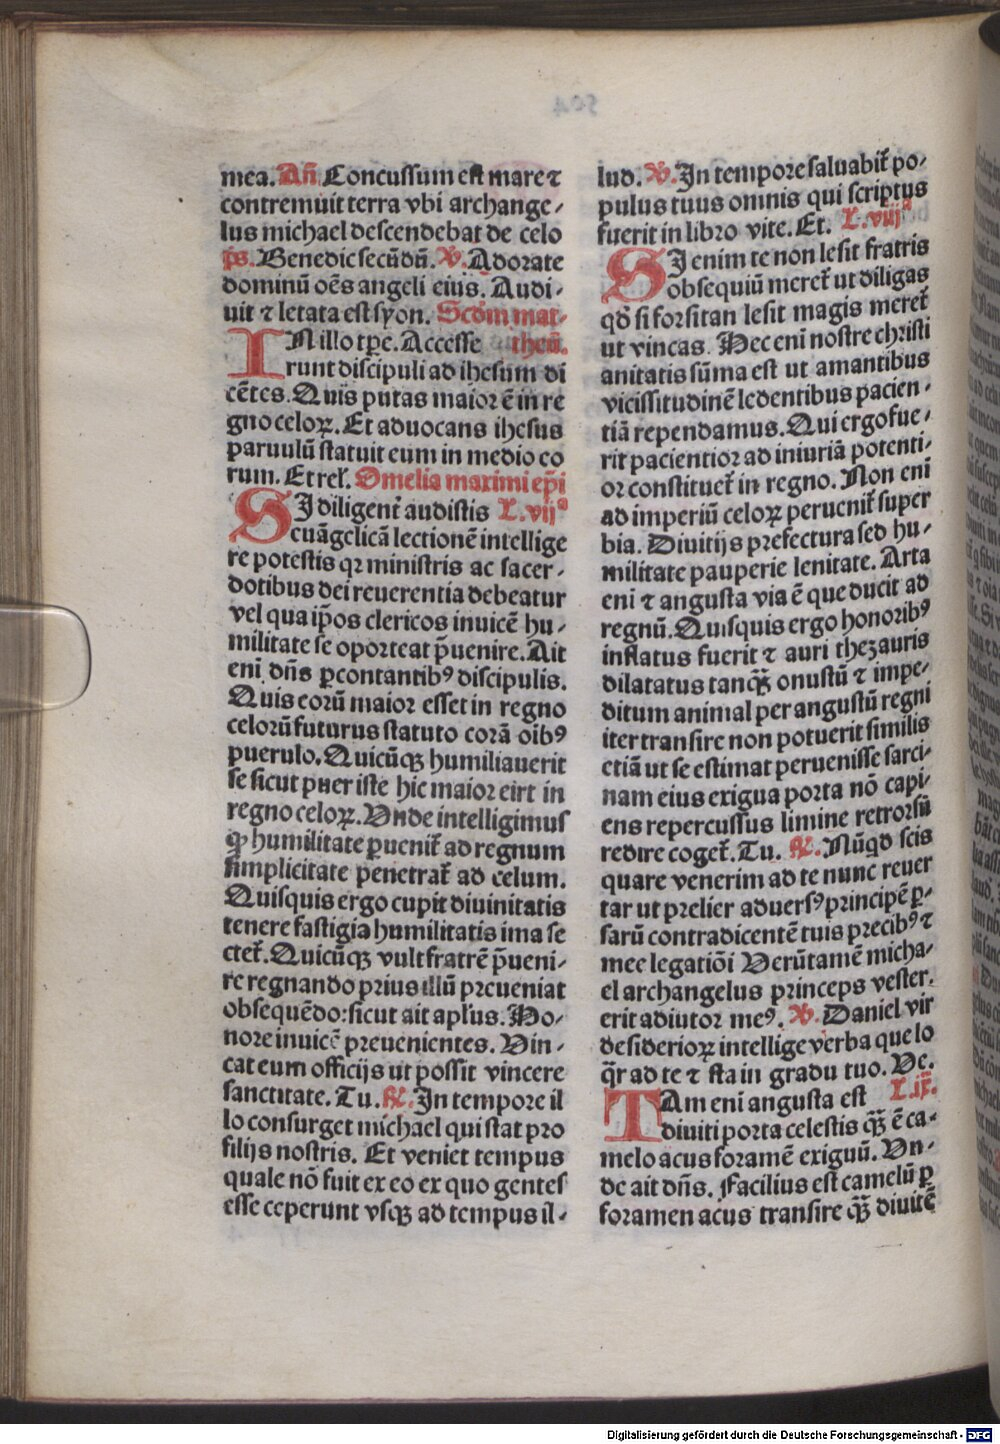 mea. An̄ Concussum est mare ⁊
contremuit terra vbi archange⸗
lus michael descendebat de celo
p̄s. Benedic secūdū. V̄. Adorate
dominū oēs angeli eius. Audi⸗
uit ⁊ letata est syon. Scd̄m mat⸗
IN illo tp̄e. Accesse theū.
runt discipuli ad ihesum di
cētes. Quis putas maior ē in re
gno celoꝝ. Et aduocans ihesus
paruulū statuit eum in medio eo
rum. Et rel̓. Omelia maximi ep̄i
SI diligent̓ audistis L. vijᵃ
euāgelicā lectionē intellige
re potestis qꝛ ministris ac sacer⸗
dotibus dei reuerentia debeatur
vel qua ip̄os clericos inuicē hu⸗
militate se oporteat p̄uenire. Ait
enī dn̄s ꝑcontantibꝰ discipulis.
Quis eorū maior esset in regno
celorū futurus statuto corā oībꝰ
puerulo. Quicūqꝫ humiliauerit
se sicut puer iste hic maior eirt in
regno celoꝝ. Vnde intelligimus
ꝙ humilitate ꝑuenit̓ ad regnum
simplicitate penetrat̓ ad celum.
Quisquis ergo cupit diuinitatis
tenere fastigia humilitatis ima se
ctet̓. Quicūqꝫ vult fratrē p̄ueni⸗
re regnando prius illū preueniat
obsequēdo: sicut ait apl̓us. Ho⸗
nore inuicē preuenientes. Vin⸗
cat eum officijs ut possit vincere
sanctitate. Tu. R̄. In tempore il
lo consurget michael qui stat pro
filijs nostris. Et veniet tempus
quale nō fuit ex eo ex quo gentes
esse ceperunt vsqꝫ ad tempus il⸗
lud. V̄. In tempore saluabit̓ po⸗
pulus tuus omnis qui scriptus
fuerit in libro vite. Et. L. viijᵃ
SI enim te non lesit fratris
obsequiū meret̓ ut diligas
qd̓ si forsitan lesit magis meret̓
ut vincas. Hec enī nostre christi
anitatis sūma est ut amantibus
vicissitudinē ledentibus pacien⸗
tiā rependamus. Qui ergo fue⸗
rit pacientior ad iniuriā potenti⸗
or constituet̓ in regno. Non enī
ad imperiū celoꝝ peruenit̓ super
bia. Diuitijs prefectura sed hu⸗
militate pauperie lenitate. Arta
enī ⁊ angusta via ē que ducit ad
regnū. Quisquis ergo honoribꝰ
inflatus fuerit ⁊ auri thezauris
dilatatus tanqꝫ̄ onustū ⁊ impe⸗
ditum animal per angustū regni
iter transire non potuerit similis
etiā ut se estimat peruenisse sarci⸗
nam eius exigua porta nō capi⸗
ens repercussus limine retrorsū
redire coget̓. Tu. R̄. Nūqd̓ scis
quare venerim ad te nunc reuer
tar ut prelier aduersꝰ principē ꝑ⸗
sarū contradicentē tuis precibꝰ ⁊
mee legatiōi Verūtamē micha⸗
el archangelus princeps vester.
erit adiutor meꝰ. V̄. Daniel vir
desiderioꝝ intellige verba que lo
q̄r ad te ⁊ sta in gradu tuo. Ve.
TAm enī angusta est L. ix̄.
diuiti porta celestis qꝫ̄ ē ca⸗
melo acus foramē exiguū. Vn⸗
de ait dn̄s. Facilius est camelū ꝑ
foramen acus transire qꝫ̄ diuitē
Digitalisierung gefördert durch die Deutsche Forschungsgemeinschaft - DFG